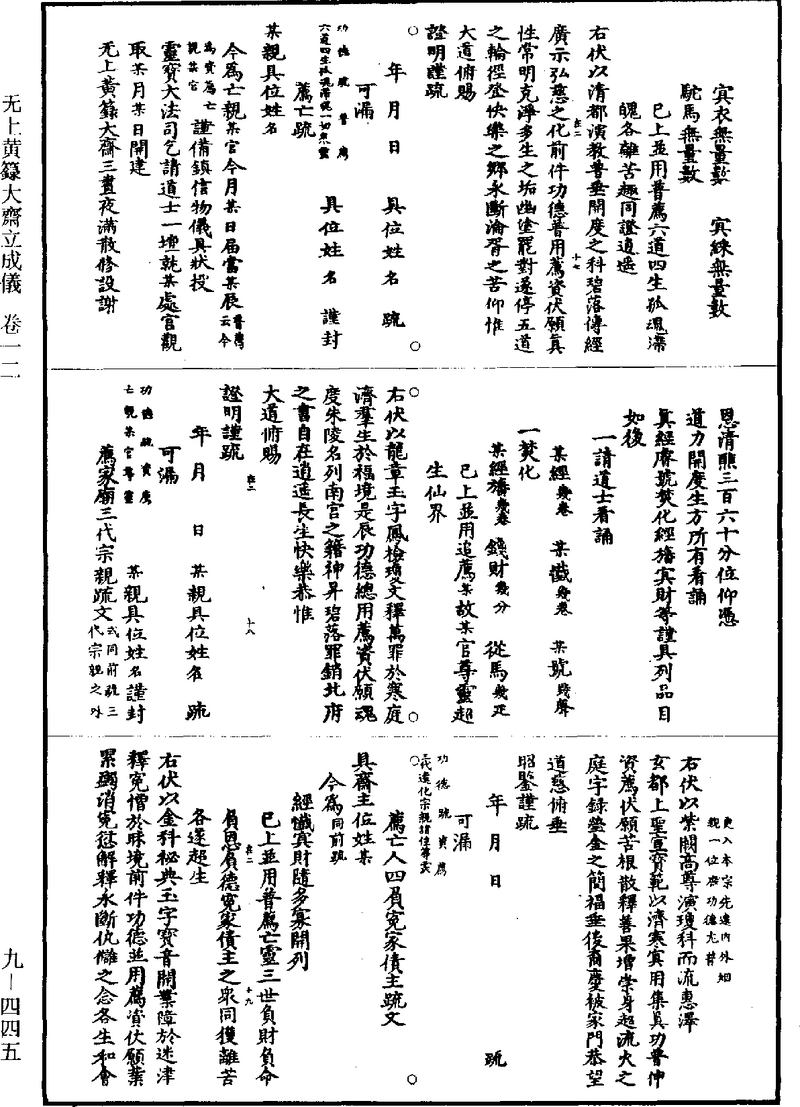 无上黄籙大齋立成儀 卷一二
九－四四五
冥衣無量數 冥綵無量數
駝馬無量數
已上並用普薦六道四生孤魂滯
魄各離苦趣同證逍遥
右伏以清都演教普垂開度之科碧落傳經
廣示弘慈之化前件功德普用薦資伏願真
性常明克淨多生之垢幽塗罷對遂停五道
之輪徑登快樂之鄉永斷淪胥之苦仰惟
大道俯賜
證明謹疏
年 月 日 具 位 姓 名 疏
可漏
功德疏普薦
六道四生孤魂滯魄一切衆靈 具位姓名 謹封
薦亡疏
某親具位姓名
今為亡親某官今月某日届當某辰普薦云今
為資薦亡親某官謹備鎮信物儀具狀投
靈寶大法司乞請道士一壇就某處官觀
取某月某日開建
无上黄籙大齋三晝夜滿散修設謝
恩清醮三百六十分位仰憑
道力開度生方所有看誦
真經聖號焚化經旛冥財等謹具列品目
如後
一請道士看誦
某經幾卷 某懺幾卷 某號幾聲
一焚化
某經旛幾卷 錢財幾分 從馬幾疋
已上並用追薦某故某官尊靈超
生仙界
右伏以龍章玉字鳳檢瓊文釋萬罪於寒庭
濟羣生於福境是辰功德總用薦資伏願魂
度朱陵名列南宫之籍神昇碧落罪銷北府
之書自在逍遥長生快樂恭惟
大道俯賜
證明謹疏
年 月 日 某親具位姓名 疏
可漏
功德疏資薦
亡親某官尊靈 某親具位姓名謹封
薦家廟三代宗親疏文式同前疏三代宗親之外
更入本宗先遠内外姻
親一位庶功德尤普
右伏以紫闕高尊演瓊科而流惠澤
玄都上聖宣寶範以濟寒冥用集真功普伸
資薦伏願苦根散釋善果增崇身超流火之
庭字錄瑩金之簡福垂後裔慶被家門恭望
道慈俯垂
昭鑒謹疏
年 月 日 疏
可漏
功德疏資薦
三代遠化宗親諸位等衆
薦亡人四負冤家債主疏文
具齋主位姓某
今為同前疏
經懺冥財隨多寡開列
已上並用普薦亡靈三世負財負命
負恩負德冤家債主之衆同獲離苦
各遂超生
右伏以金科秘典玉字寶音開業障於迷津
釋冤憎於昧境前件功德並用薦資伏願業
累蠲消冤愆解釋永斷仇讎之念各生和會